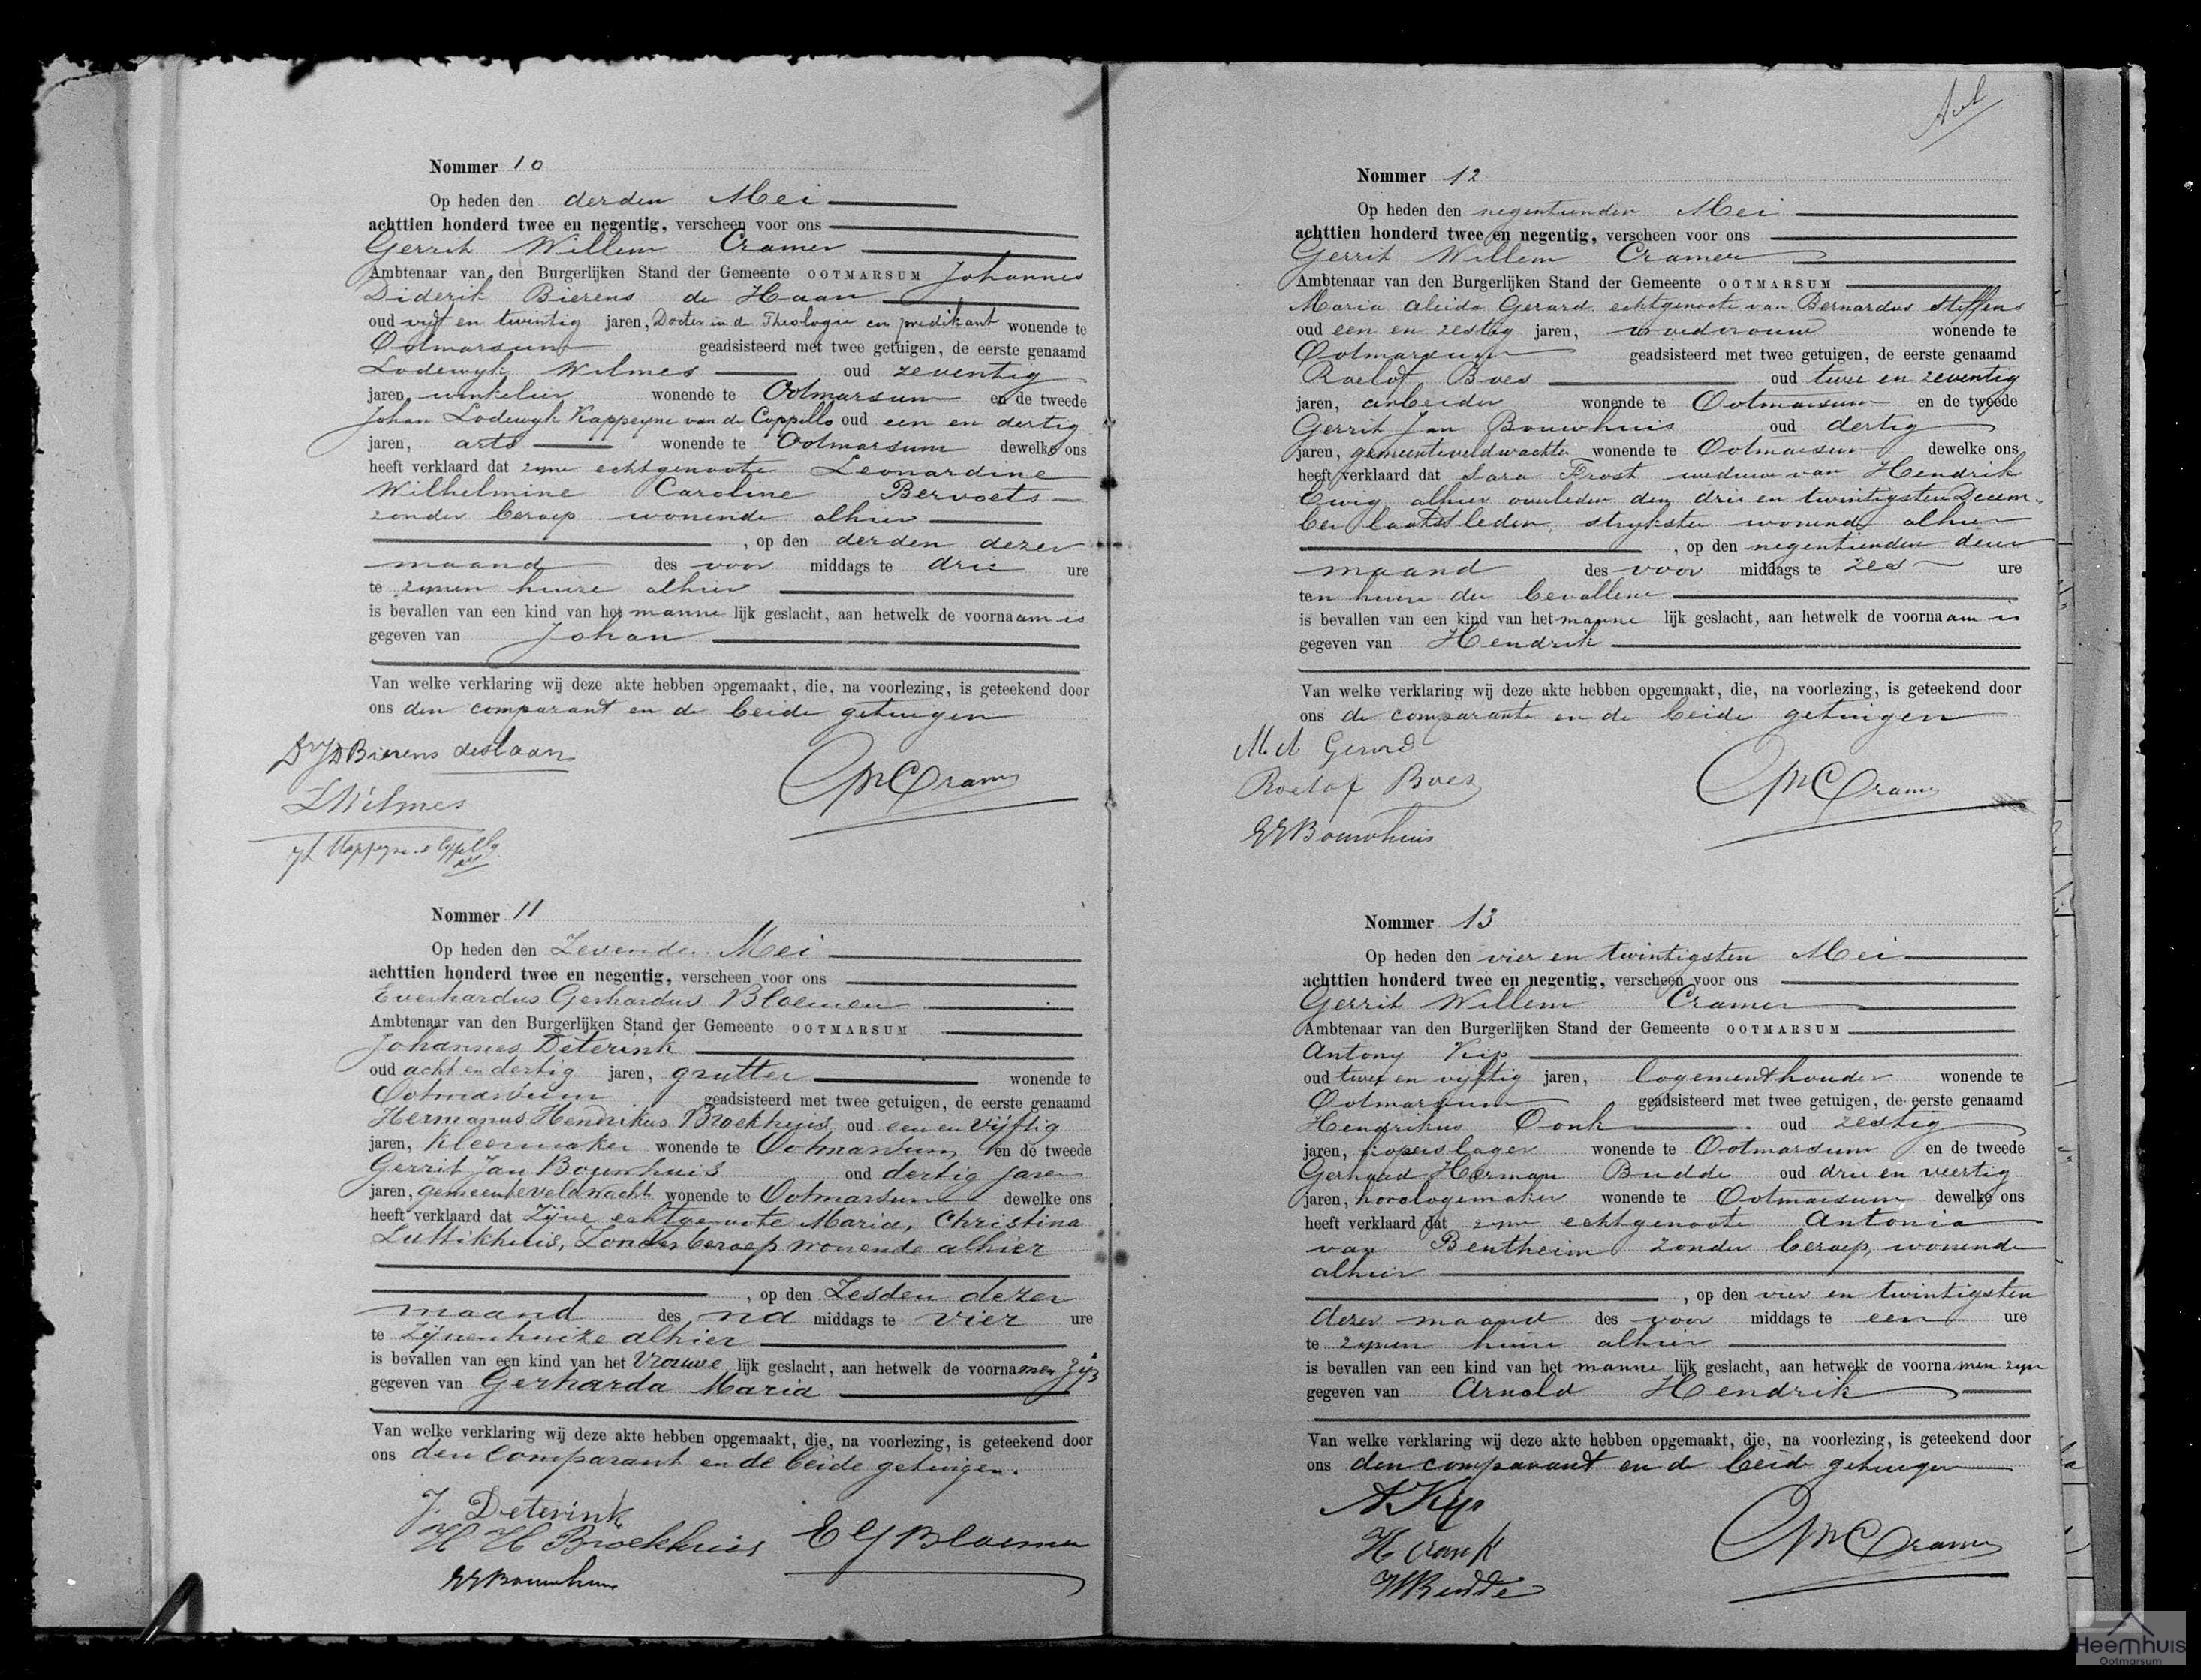 Nommer 10
Op heden den derden Mei
achttien honderd twee en negentig, verscheen voor ons
Gerrit Willem Cramer
Ambtenaar van den Burgerlijken Stand der Gemeente OOTMARSUM Johannes
Diderik Bierens de Haan
oud vijf en twintig jaren, Docter in de Theologie en predikant wonende te
Ootmarsum geadsisteerd met twee getuigen, de eerste genaamd
Lodewyk Wilmes oud zeventig
jaren, winkelier wonende te Ootmarsum en de tweede
Johan Lodewyk Kappeyne van de Coppello oud een en dertig
jaren, arts wonende te Ootmarsum dewelke ons
heeft verklaard dat zyne echtgenoote Leonardine
Wilhelmine Caroline Bervoets
zonder beroep wonende alhier
, op den derden dezer
maand des voor middags te drie ure
te zynen huize alhier
is bevallen van een kind van het manne lijk geslacht, aan hetwelk de voornaam is
gegeven van Johan
Van welke verklaring wij deze akte hebben opgemaakt, die, na voorlezing, is geteekend door
ons den comparant en de beide getuigen
Dr JD Bierens de Haan
LWilmes
GWCramer
Nommer 11
Op heden den Zevenden Mei
achttien honderd twee en negentig, verscheen voor ons
Everhardus Gerhardus Bloemen
Ambtenaar van den Burgerlijken Stand der Gemeente OOTMARSUM
Johannes Deterink
oud acht en dertig jaren, grutter wonende te
Ootmarsum geadsisteerd met twee getuigen, de eerste genaamd
Hermanus Hendrikus Broekhuis, oud een en vijftig
jaren, Kleermaker wonende te Ootmarsum en de tweede
Gerrit Jan Bouwhuis oud dertig jaren
jaren, gemeenteveldwacht wonende te Ootmarsum dewelke ons
heeft verklaard dat Zijne echtgenoote Maria, Christina
Luttikhuis, Zonder beroep wonende alhier
, op den Zesden dezer
maand des na middags te vier ure
te Zijnen huize alhier
is bevallen van een kind van het Vrouwe lijk geslacht, aan hetwelk de voornamen zijn
gegeven van Gerharda Maria
Van welke verklaring wij deze akte hebben opgemaakt, die, na voorlezing, is geteekend door
ons den comparant en de beide getuigen.
J. Deterink
H H Broekhuis EGBloemen
GJBouwhuis
Nommer 12
Op heden den negentienden Mei
achttien honderd twee en negentig, verscheen voor ons
Gerrit Willem Cramer
Ambtenaar van den Burgerlijken Stand der Gemeente OOTMARSUM
Maria Aleida Gerard echtgenoote van Bernardus Steffens
oud een en zestig jaren, vroedvrouw wonende te
Ootmarsum geadsisteerd met twee getuigen, de eerste genaamd
Roelof Boes oud twee en zeventig
jaren, arbeider wonende te Ootmarsum en de tweede
Gerrit Jan Bouwhuis oud dertig
jaren, gemeenteveldwachter wonende te Ootmarsum dewelke ons
heeft verklaard dat Sara Frost weduwe van Hendrik
Ewig alhier overleden den drie en twintigsten Decem-
ber laatstleden, strykster wonende alhier
, op den negentienden dezer
maand des voor middags te zes ure
ten huize der bevallene
is bevallen van een kind van het manne lijk geslacht, aan hetwelk de voornaam is
gegeven van Hendrik
Van welke verklaring wij deze akte hebben opgemaakt, die, na voorlezing, is geteekend door
ons de comparante en de beide getuigen
M A Gerard
Roelof Boes
GWCramer
GJBouwhuis
Nommer 13
Op heden den vier en twintigsten Mei
achttien honderd twee en negentig, verscheen voor ons
Gerrit Willem Cramer
Ambtenaar van den Burgerlijken Stand der Gemeente OOTMARSUM
Antony Kip
oud twee en vyftig jaren, logementhouder wonende te
Ootmarsum geadsisteerd met twee getuigen, de eerste genaamd
Hendrikus Oonk oud zestig
jaren, koperslager wonende te Ootmarsum en de tweede
Gerhard Herman Budde oud drie en veertig
jaren, horologemaker wonende te Ootmarsum dewelke ons
heeft verklaard dat zyne echtgenoote Antonia
van Bentheim zonder beroep, wonende
alhier
, op den vier en twintigsten
dezer maand des voor middags te een ure
te zynen huize alhier
is bevallen van een kind van het manne lijk geslacht, aan hetwelk de voornamen zyn
gegeven van Arnold Hendrik
Van welke verklaring wij deze akte hebben opgemaakt, die, na voorlezing, is geteekend door
ons den comparant en de beide getuigen
A Kip
H Oonk
GWCramer
Budde
Heemhuis
Ootmarsum